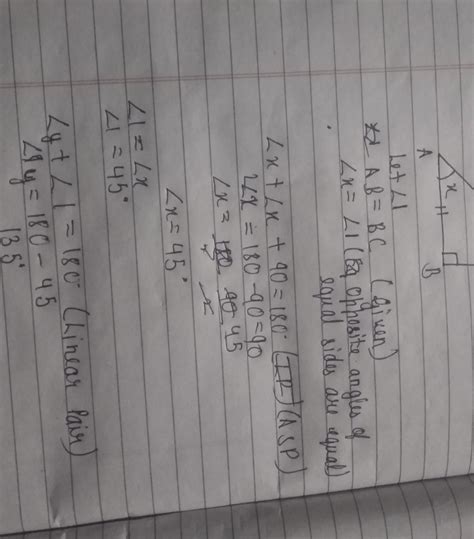 x
A
B
Let ∠1
AB = BC (Given)
∠x = ∠1 (Eq opposite angles of
equal sides are equal)
∠x + ∠x + 90 = 180° (ASP)
2∠x = 180 - 90 = 90
∠x = 45
∠x = 45°
∠1 = ∠x
∠1 = 45°
∠y + ∠1 = 180° (Linear Pair)
∠y = 180 - 45
135°